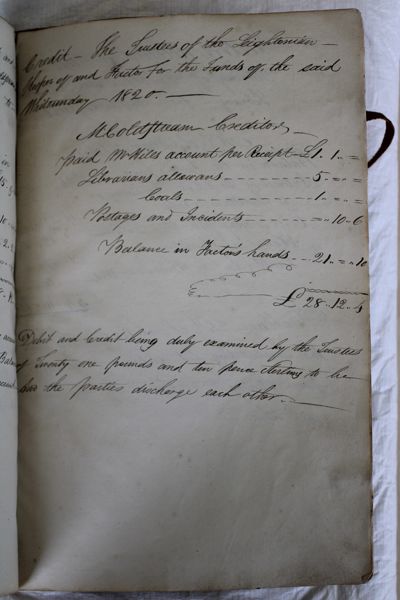 Credit - The Trustees of the Leightonian -
Keeper of and Factor for the Funds of the said
Whitsunday 1820. -
M Coldstream Creditor
paid Mr Miles account per Receipt - £1 " 1 " =
Librarians allowans - - - - - - 5 " = " =
Coals - - - - - - 1 " = " =
Postages and Incidents - - - - - - = " 10 " 6
Ballance in Factors hands - - - 21 " = " 10
£ 28 " 12 " 4
Debit and Credit being duly examined by the Trustees
of Twenty one pounds and ten pence Sterling to be
the parties discharge each other. -